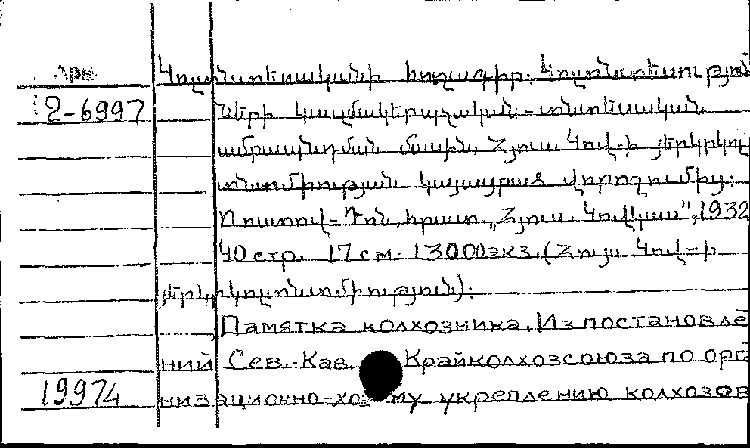 Арм
2-6997
Կոլտնտեսականի հուշագիր. Կոլտնտեսություն
ների կազմակերպչական-տնտեսական
ամրապնդման մասին. Հյուս. Կովկ-ի յերկրկոլ
տնտմիության վորոշումից:
Ռոստով-Դոն, հրատ. „Հյուս. Կովկաս", 1932
40 стр. 17 см. 13000 экз. (Հյուս. Կովկ-ի
յերկրկոլտնտմիություն):
Памятка колхозника. Из постановле
ний Сев.-Кав. Крайколхозсоюза по орга
19974
низационно-хоз му укреплению колхозов